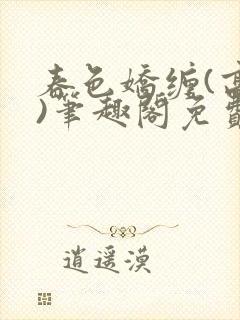 春色娇缠(
)笔趣阁免
逍遥漠